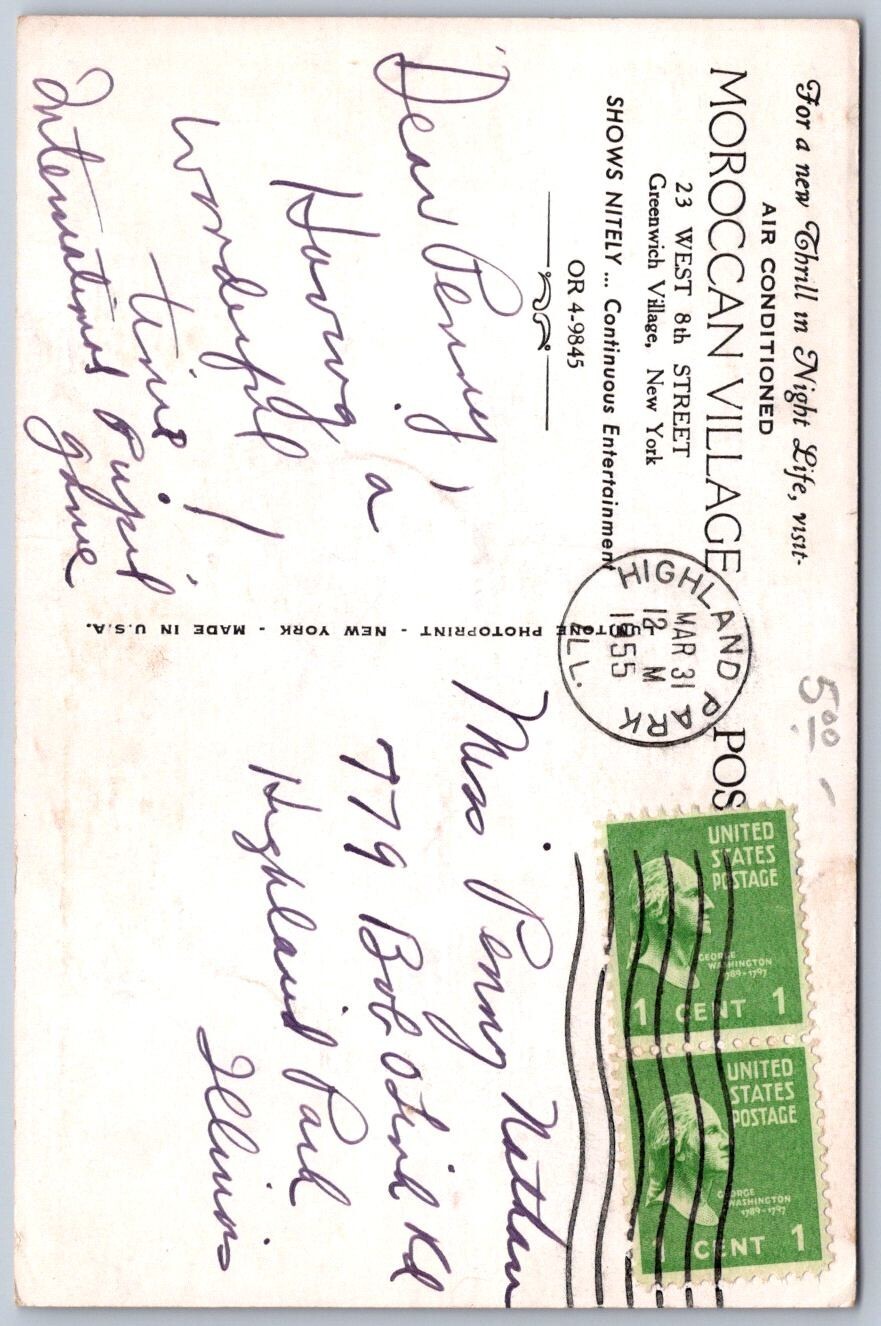 For a new Thrill in Night Life, visit-
AIR CONDITIONED
MOROCCAN VILLAGE
23 WEST 8th STREET
Greenwich Village, New York
SHOWS NITELY ... Continuous Entertainment
OR 4-9845
Dear Penny,
Having a
wonderful
time!
International Pupil
game
UNITONE PHOTOPRINT - NEW YORK - MADE IN U.S.A.
HIGHLAND PARK
MAR 31
12 M
1955
ILL.
5.00
POS
UNITED
STATES
POSTAGE
GEORGE
WASHINGTON
1789-1797
1 CENT 1
UNITED
STATES
POSTAGE
GEORGE
WASHINGTON
1789-1797
1 CENT 1
Miss Penny Nathan
779 Bob O Link Rd
Highland Park
Illinois